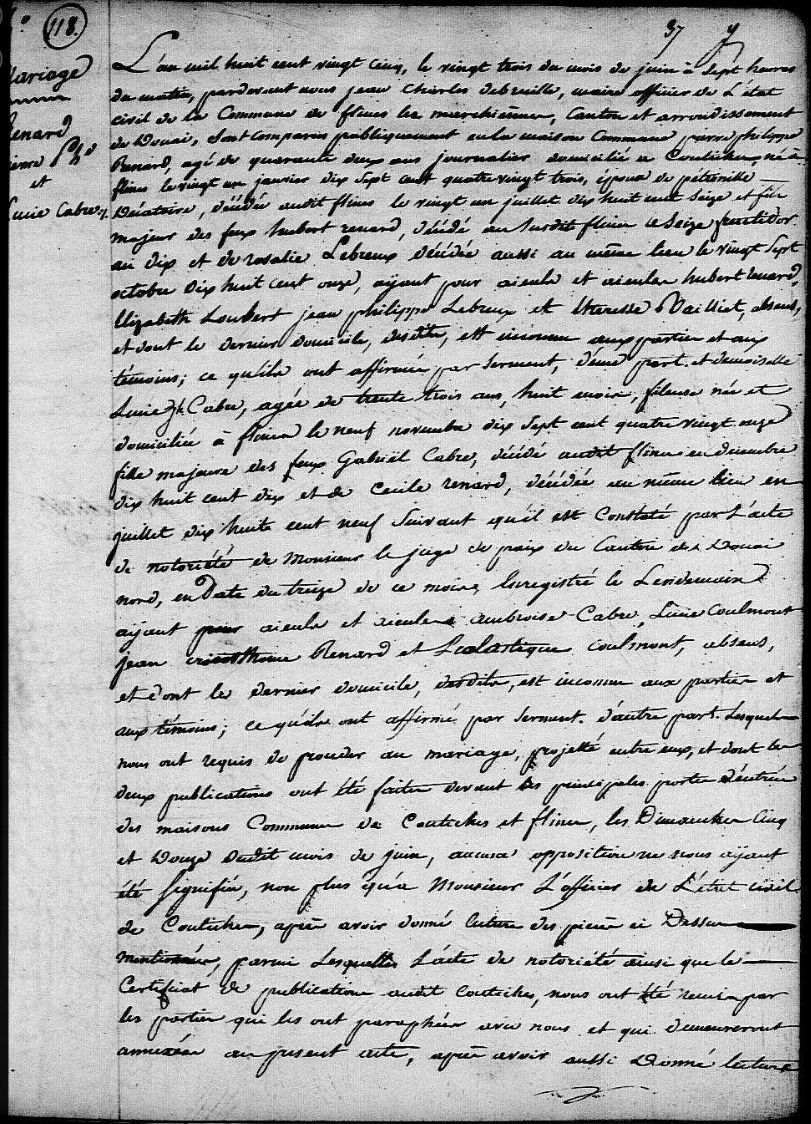 118.
37
Mariage
Renard
pierre Ph.
et
Lucie Cabre
L'an mil huit cent vingt cinq, le vingt trois du mois de juin à Sept heures
du matin, pardevant nous jean Charles debreille, maire officier de L'état
civil de la Commune de flines lez marchiennes, Canton et arrondissement
de Douai, Sont Comparus publiquement en la maison Commune pierre philippe
Renard, agé de quarante deux ans journalier domicilié a Coutiches, né à
flines le vingt un janvier dix Sept cent quatre vingt trois, époux de petronille
décédée audit flines le vingt un juillet dix huit cent Seize et fils
majeur des feux hubert renard, décédé au Susdit flines le Seize fructidor
an dix et de rosalie Lebreux décédée aussi au même lieu le vingt Sept
octobre dix huit cent onze, ayant pour aieuls et aieules hubert renard,
Elizabeth Loubert jean philippe Lebreux et theresse Vailliet, absens,
et dont le dernier domicile, desdits, est inconnu aux parties et aux
témoins; ce qu'ils ont affirmés par Serment, d'une part. et demoiselle
Lucie jh Cabre, agée de trente trois ans, huit mois, fileuse née et
domiciliée à flines le neuf novembre dix Sept cent quatre vingt onze
fille majeure des feux Gabriël Cabre, décédé audit flines en decembre
dix huit cent dix et de Cecile renard, décédée au même lieu en
juillet dix huite cent neuf Suivant qu'il est Constaté par L'acte
de notoriété de Monsieur le juge de paix du Canton de Douai
nord, en Date du treize de ce mois, Enregistrée le Lendemain
ayant pour aieuls et aieules ambroise Cabre, Lucie Coulmont
jean Renard et Scolastique Coulmont, absens,
et dont les dernier domicile, desdits, est inconnu aux parties et
aux témoins; ce qu'ils ont affirmé par Serment. d'autre part. Lesquels
nous ont requis de proceder au mariage, projetté entre eux, et dont les
deux publications ont été faites devant les principales portes d'entrée
des maisons Commune de Coutiches et flines, les Dimanches Cinq
et Douze dudit mois de juin, aucune opposition ne nous ayant
été Signifiée, non plus qu'a Monsieur L'officier de L'état civil
de Coutiches, après avoir donné lecture des pieces ci Dessus
mentionnées, parmi Lesquelles L'acte de notoriété ainsi que le
Certificat de publication audit Coutiches, nous ont été remis par
les parties qui les ont paraphées avec nous et qui demeureront
annexées au present acte, après avoir aussi Donné lecture